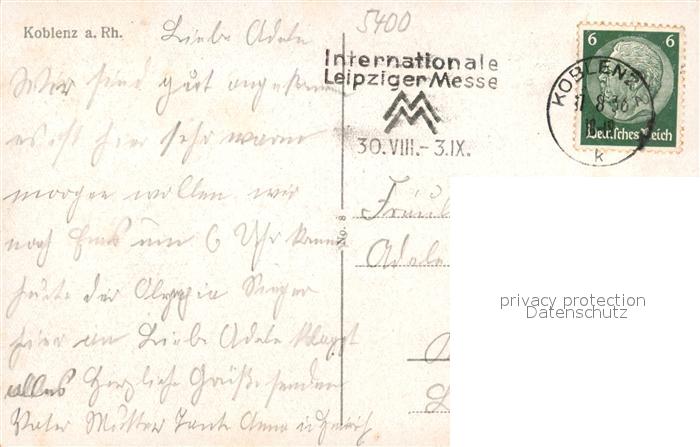 Koblenz a. Rh.
5400
Liebe Adele
Wir sind gut angekommen
es ist hier sehr warm
morgen wollen wir
nach Ems um 6 Uhr kam
heute der Olympia Sieger
hier an Liebe Adele klappt
alles Herzliche Grüße senden
Vater Mutter Tante Anna
Internationale
Leipziger Messe
30.VIII.-3.IX.
KOBLENZ
k
6 6
Deutsches Reich
No. 8
Adele
privacy protection
Datenschutz